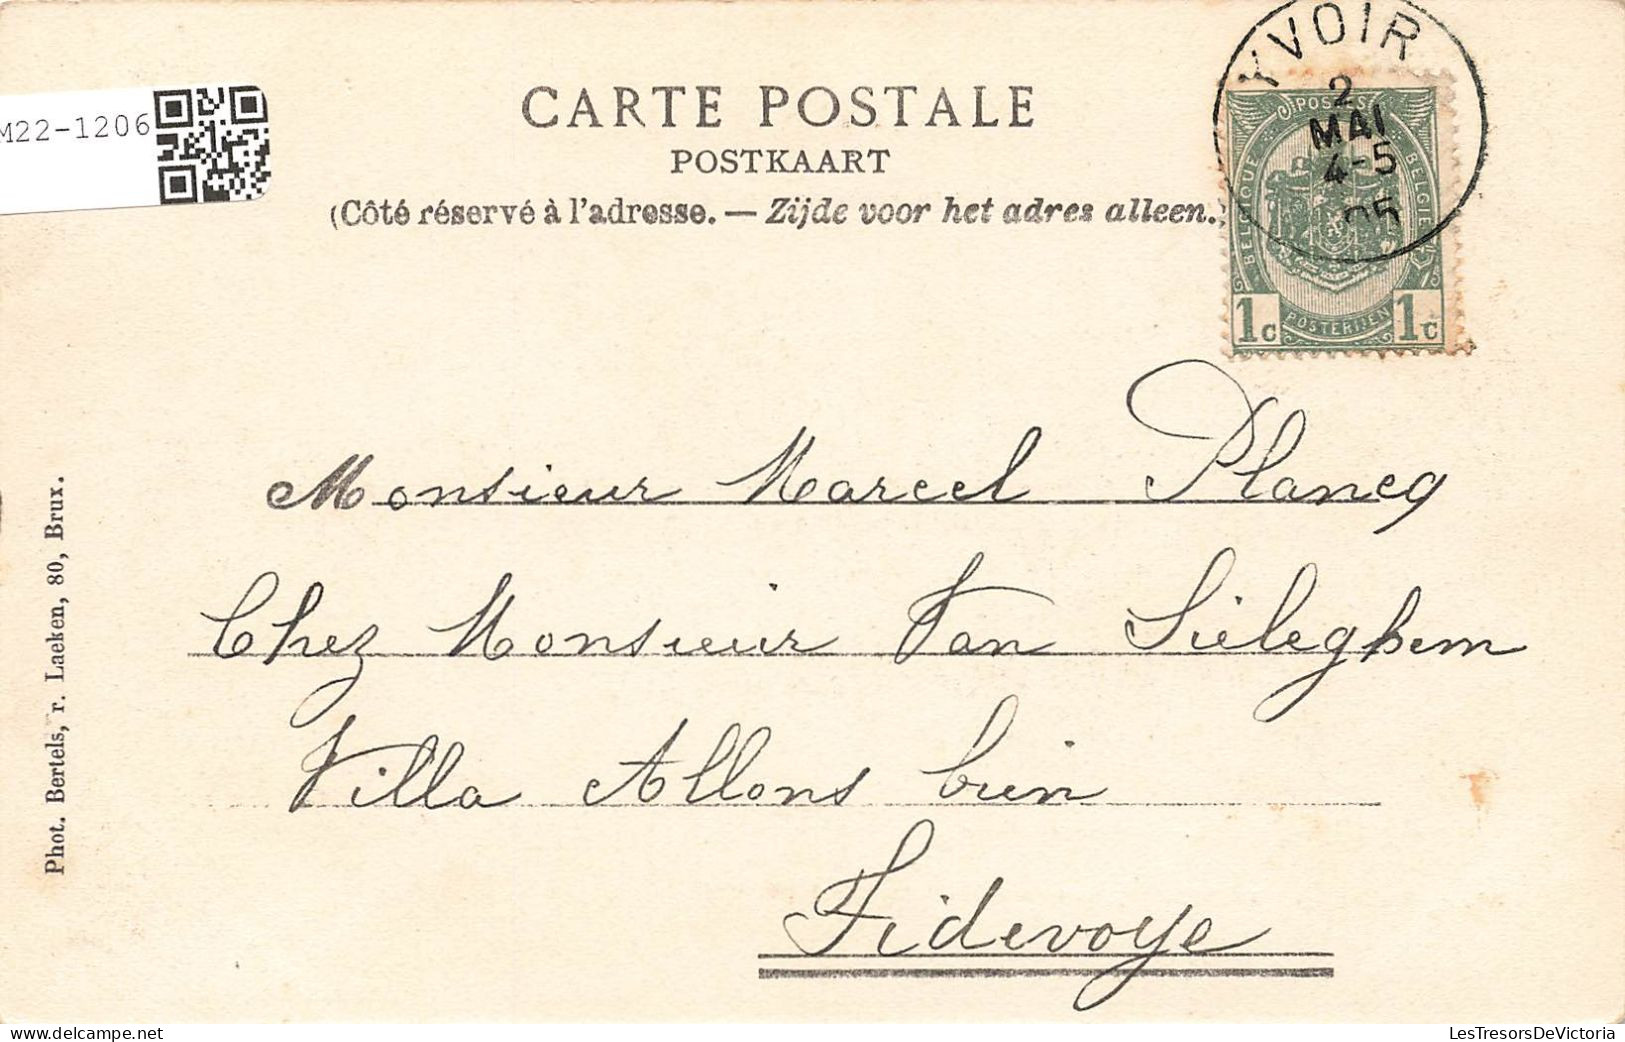 YVOIR
2
MAI
4-5
05
M22-1206
CARTE POSTALE
POSTKAART
(Côté réservé à l'adresse. — Zijde voor het adres alleen.)
POSTES
BELGIQUE
BELGIË
1c POSTERIJEN 1c
Monsieur Marcel Plancq
Chez Monsieur Van Sieleghem
Villa Allons bien
Fidevoye
Phot. Bertels, r. Laeken, 80, Brux.
LesTresorsDeVictoria